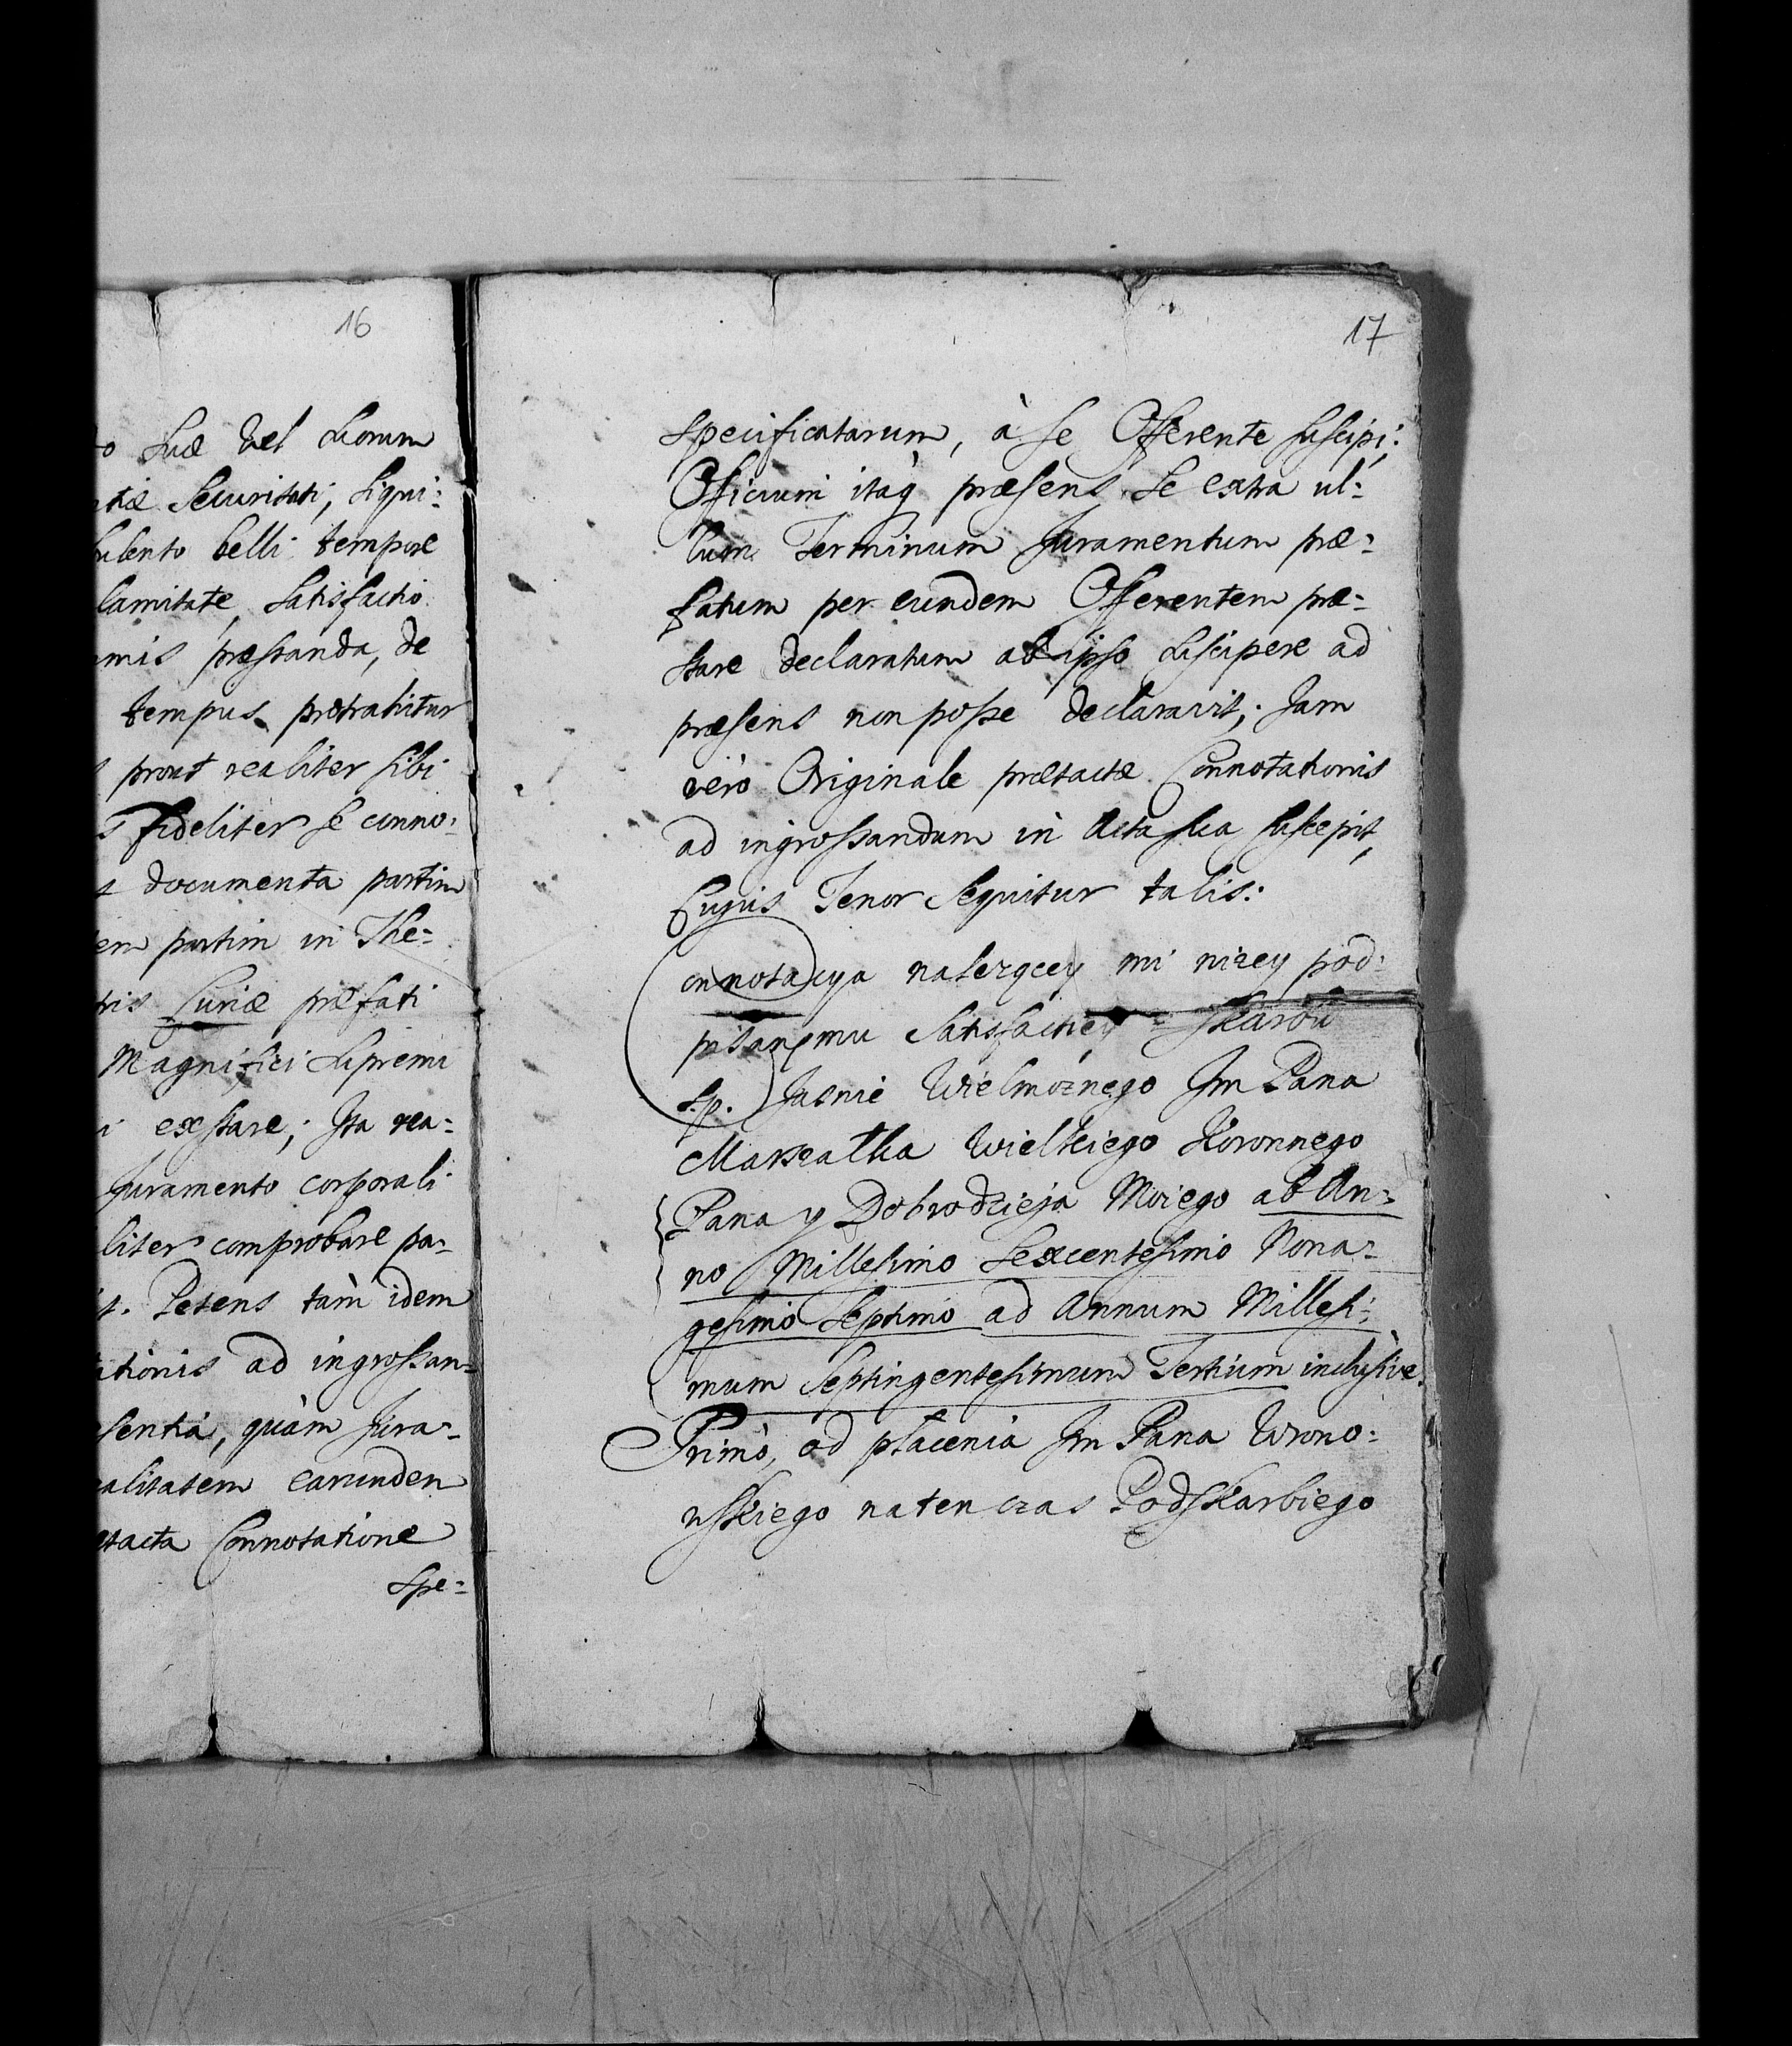 16
suæ vel suorum
Securitati, siqui=
belli tempore
lamitate, satisfactio
præstanda, de
tempus protrahitur
prout realiter sibi
fideliter se conno=
documenta partim
partim in The=
Curiæ præfati
Magnifici supremi
exstare; Ita rea=
Juramento corporali
liter comprobare pa=
Petens tàm idem
ad ingrossan=
sentia, quàm Jura=
alitatem earunden
tacta Connotatione
Spe=
17
specificatarum, à se Offerente suscipi:
Officium itaq præsens se extra ul=
lum Terminum Juramentum præ=
fatum per eundem Offerentem præ=
stare declaratum ab ipso suscipere ad
præsens non posse declaravit; Jam
verò Originale prætactæ Connotationis
ad ingrossandum in Acta sua suscepit,
Cujus Tenor sequitur talis:
Connotacya nalezącey mi nizey pod=
pisanemu Satisfactiey z Skarbu
s.p. Jasnie Wielmoznego Jm Pana
Marszałka Wielkiego Koronnego
Pana y Dobrodzieja Moiego ab An=
no Millesimo Sexcentesimo Nona=
gesimo Septimo ad Annum Millesi=
mum Septingentesimum Tertium inclusive.
Primò, od płacenia Jm Pana Wrono=
wskiego naten czas Podskarbiego